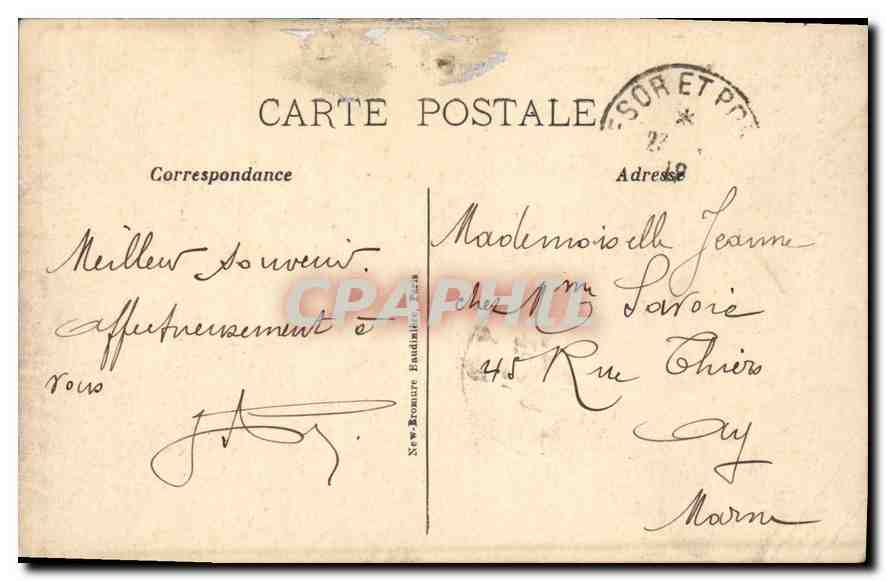 CARTE POSTALE
Correspondance
Adresse
SOR ET PO
Meilleur souvenir.
affectueusement à
vous
New-Bromure Baudinière, Paris
Mademoiselle Jeanne
chez Mme Savoie
45 Rue Thiers
Ay
Marne
CPAPHIL